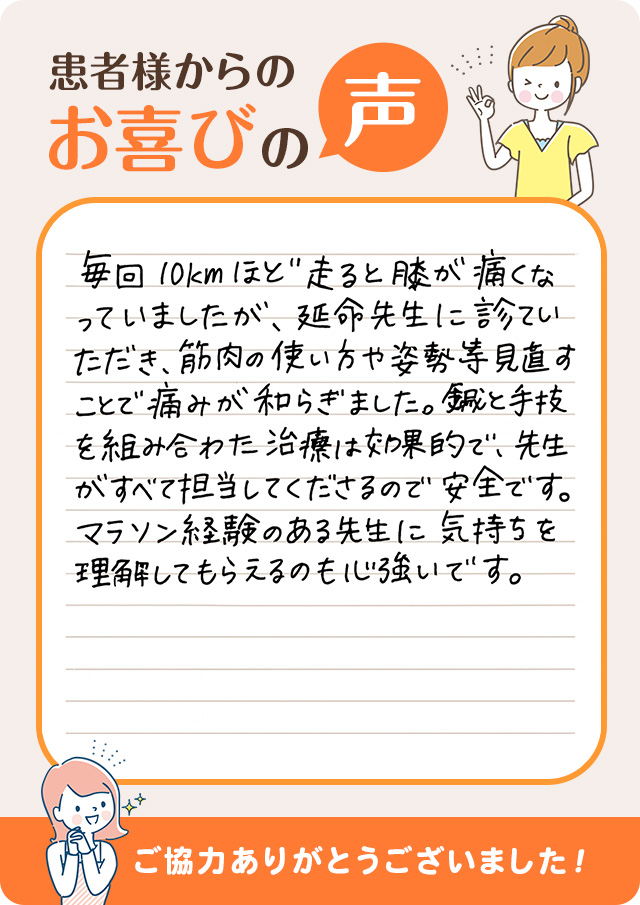 患者様からの
お喜びの声
毎回10kmほど走ると膝が痛くな
っていましたが、延命先生に診てい
ただき、筋肉の使い方や姿勢等見直す
ことで痛みが和らぎました。鍼と手技
を組み合わた治療は効果的で、先生
がすべて担当してくださるので安全です。
マラソン経験のある先生に気持ちを
理解してもらえるのも心強いです。
ご協力ありがとうございました!